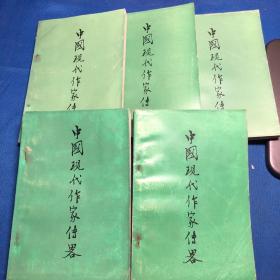 中國現代作家傳畧
中國現代作家傳
中國現代作家傳
中國現代作家傳畧
中國現代作家傳畧